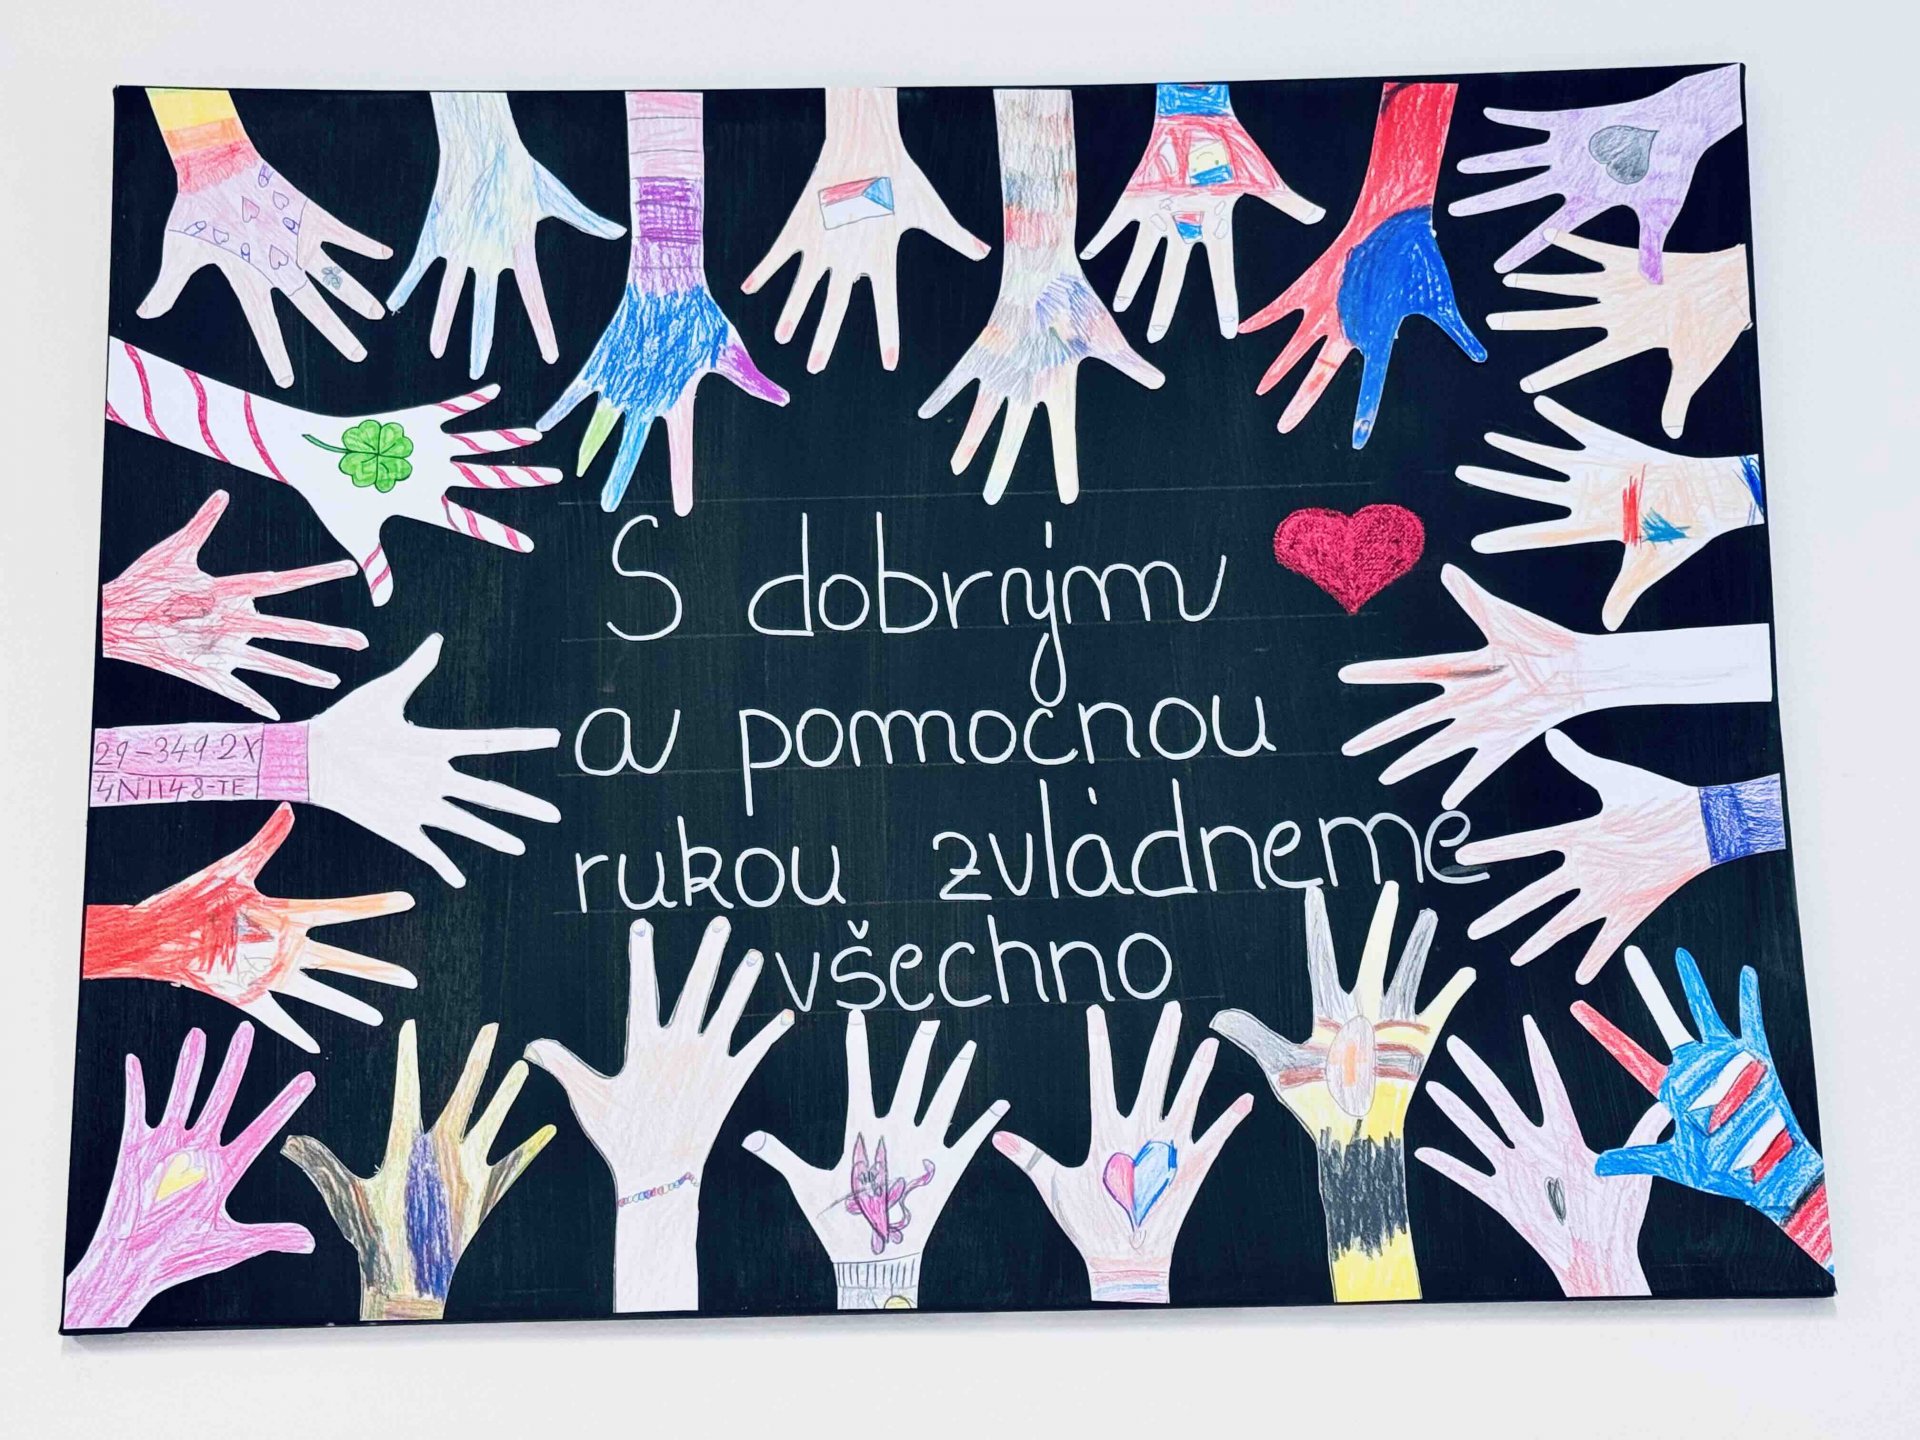 S dobrým
a pomocnou
rukou zvládneme
všechno
29-349 2X
4N1148-TE